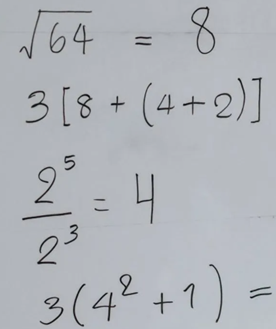 √64 = 8
3[8 + (4+2)]
2⁵/2³ = 4
3(4² + 1) =